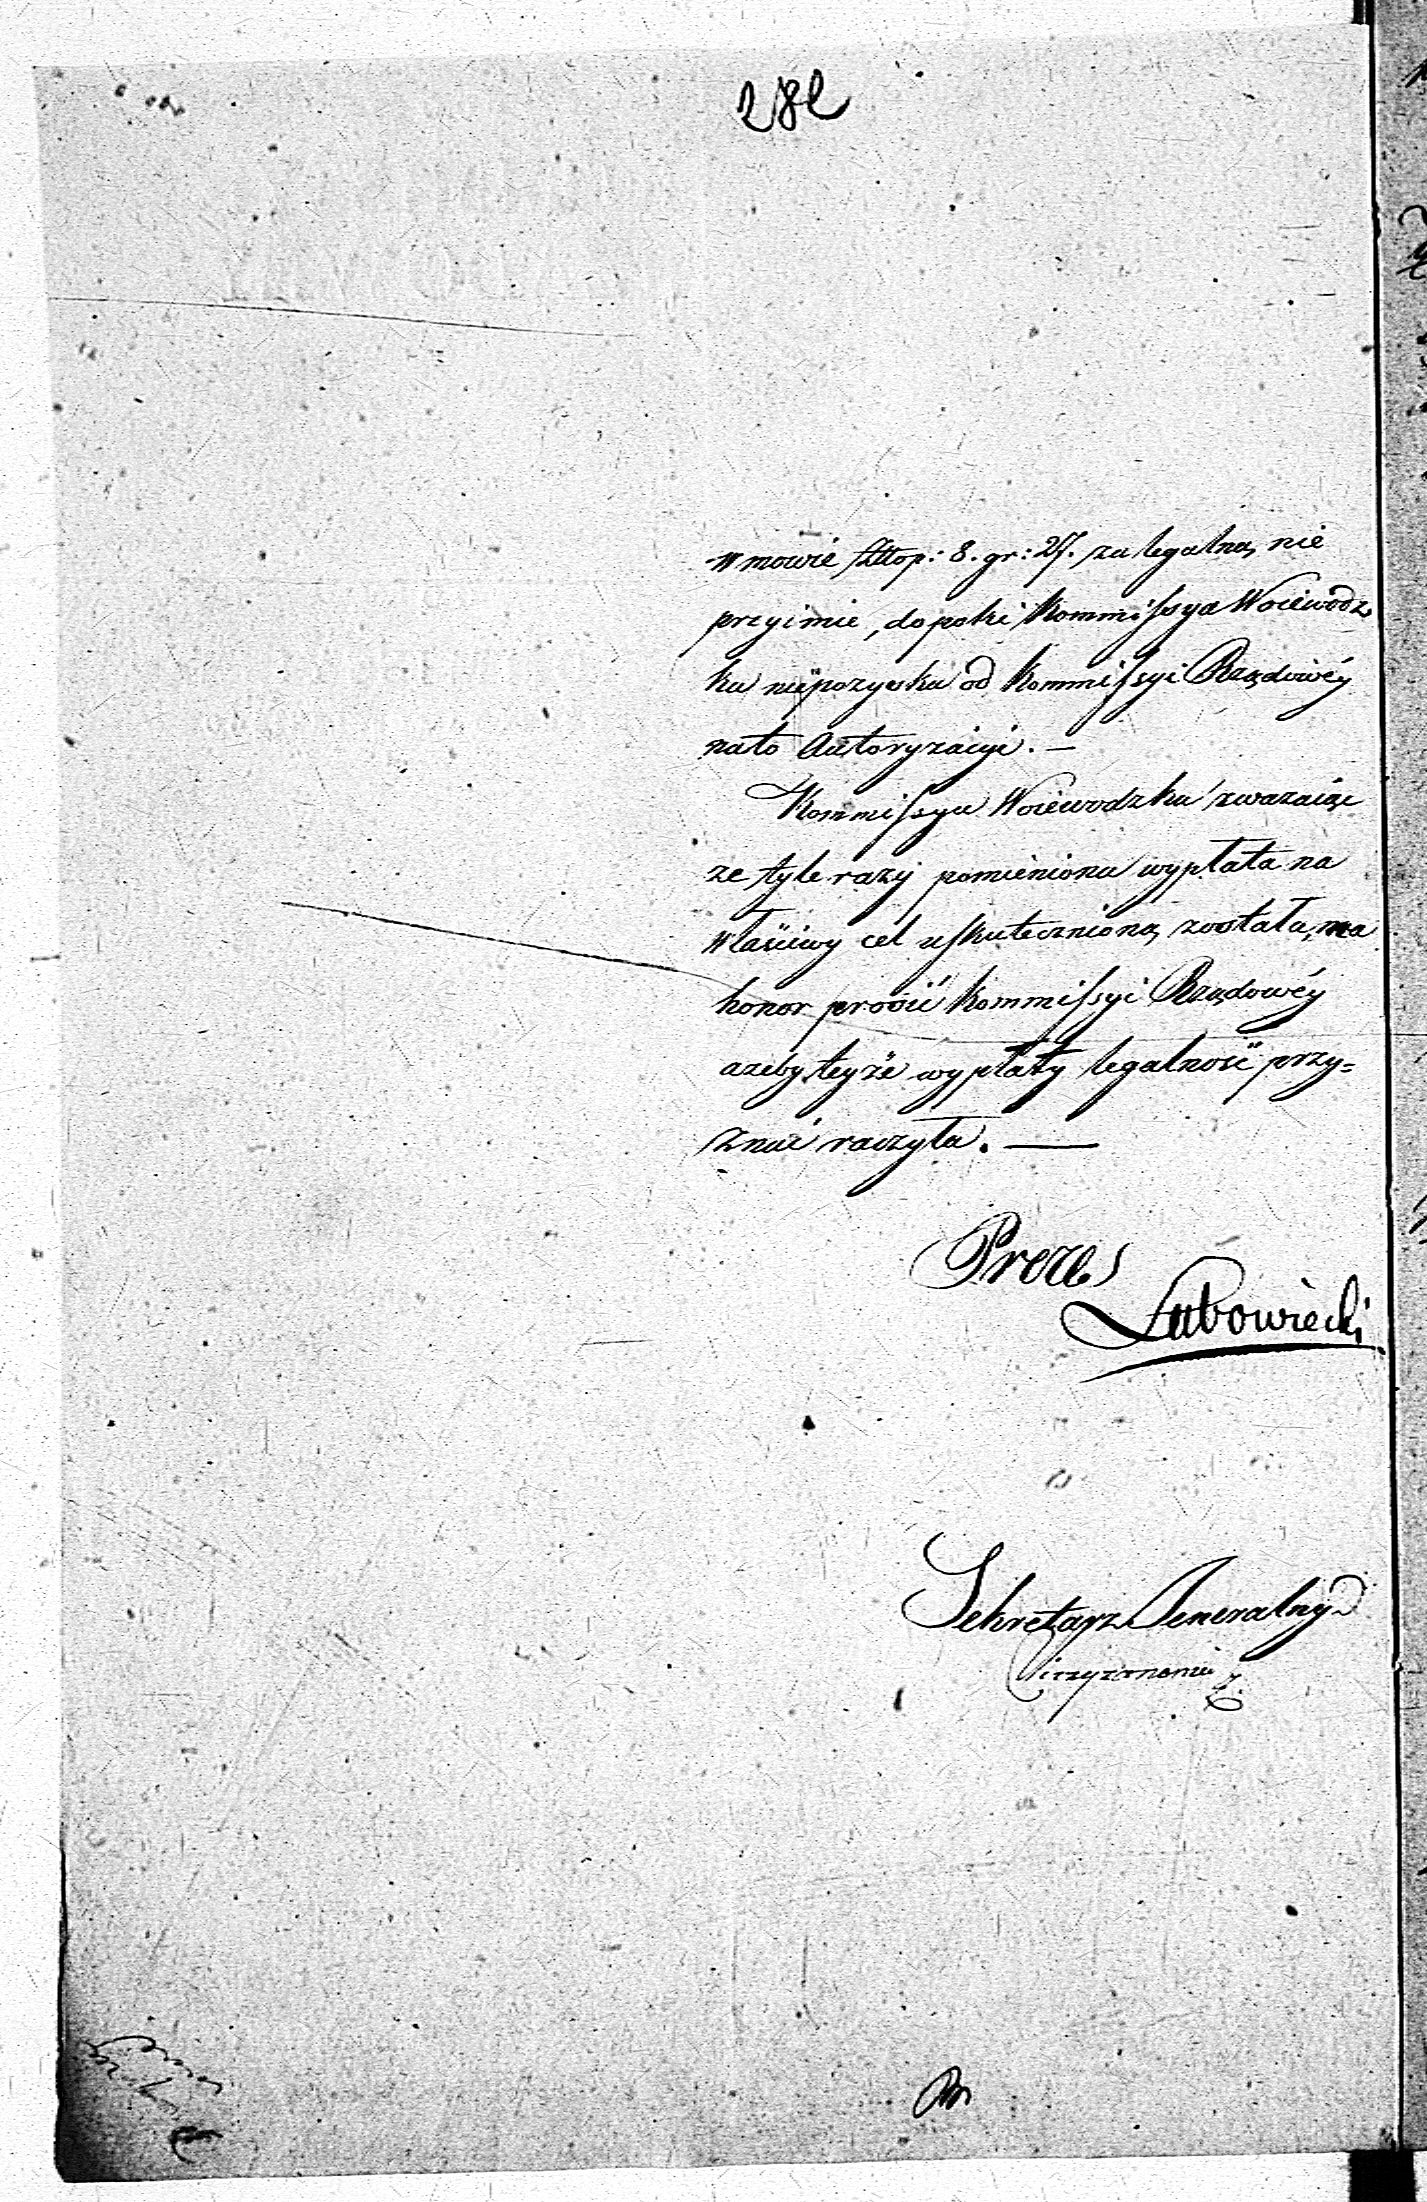 282
w mowie Złłop: 8. gr: 27. za legalną nie
przyimie, dopoki Kommissya Woiewodz
ka niepozyska od Kommissyi Rządowéy
nato Autoryzacyi. —
Kommissya Woiewodzka zwazaiąc
ze tyle razy pomieniona wypłata na
właściwy cel uskutecznioną została, ma
honor prosić Kommissyi Rządowéy
azeby teyże wypłaty legalność przy=
znać raczyła. —
Prezes
Lubowiecki
Sekretarz Jeneralny